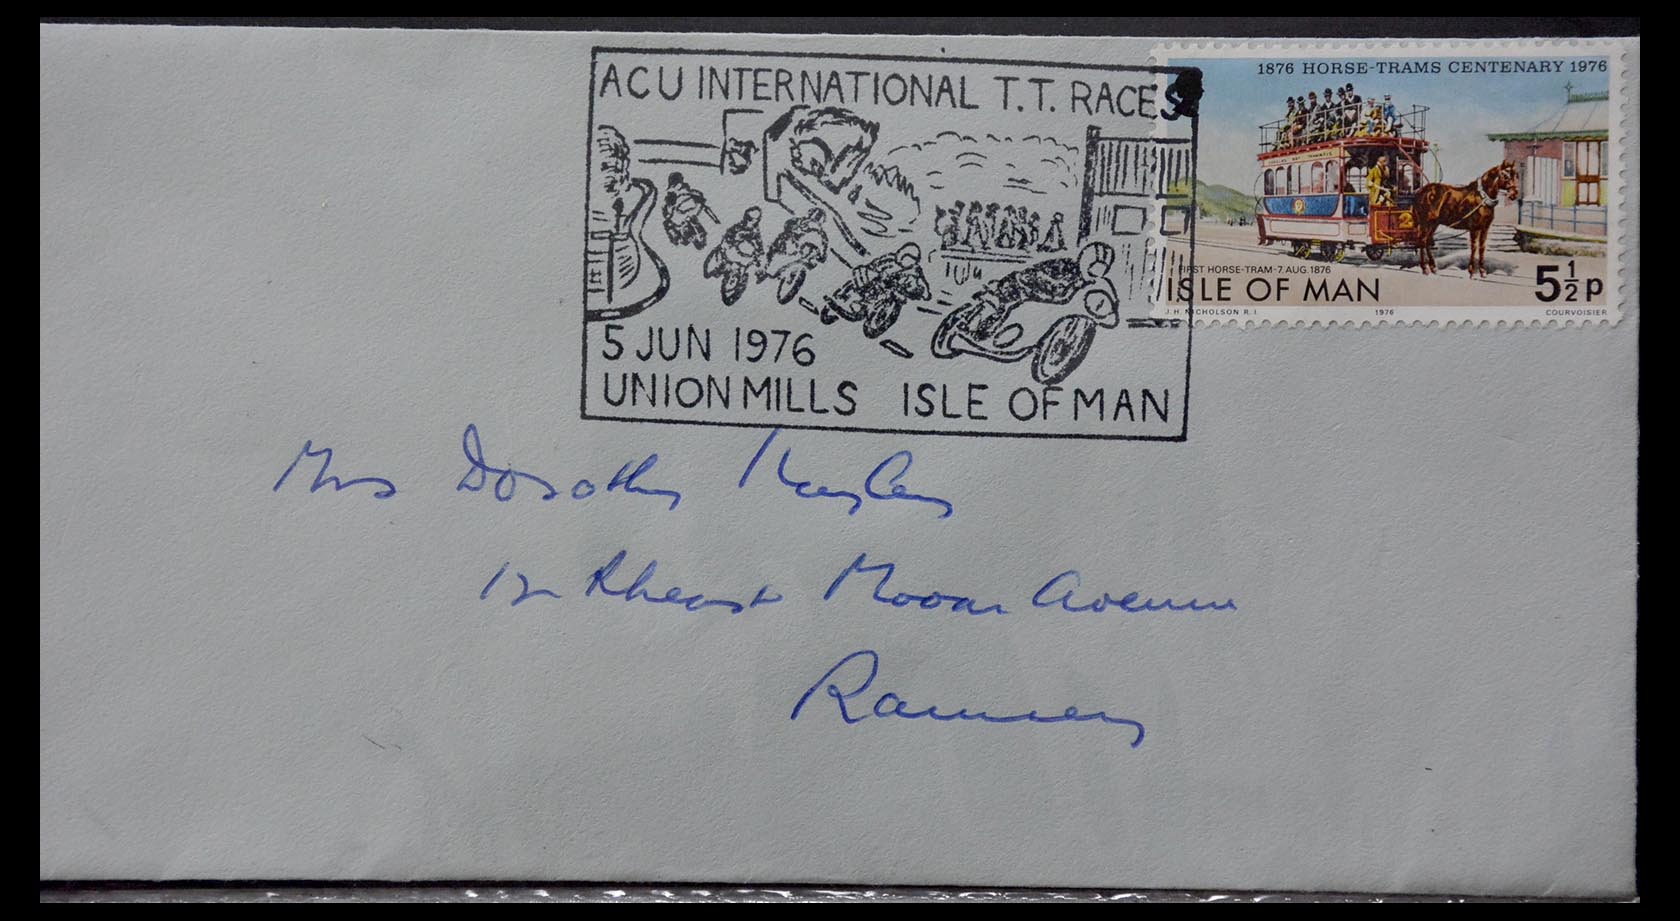 ACU INTERNATIONAL T.T. RACES
5 JUN 1976
UNION MILLS ISLE OF MAN
1876 HORSE-TRAMS CENTENARY 1976
2
FIRST HORSE-TRAM-7.AUG.1876
ISLE OF MAN 5½p
J.H. NICHOLSON R.I. 1976 COURVOISIER
Mrs Dorothy
12 Rheast Mooar Avenue
Ramsey